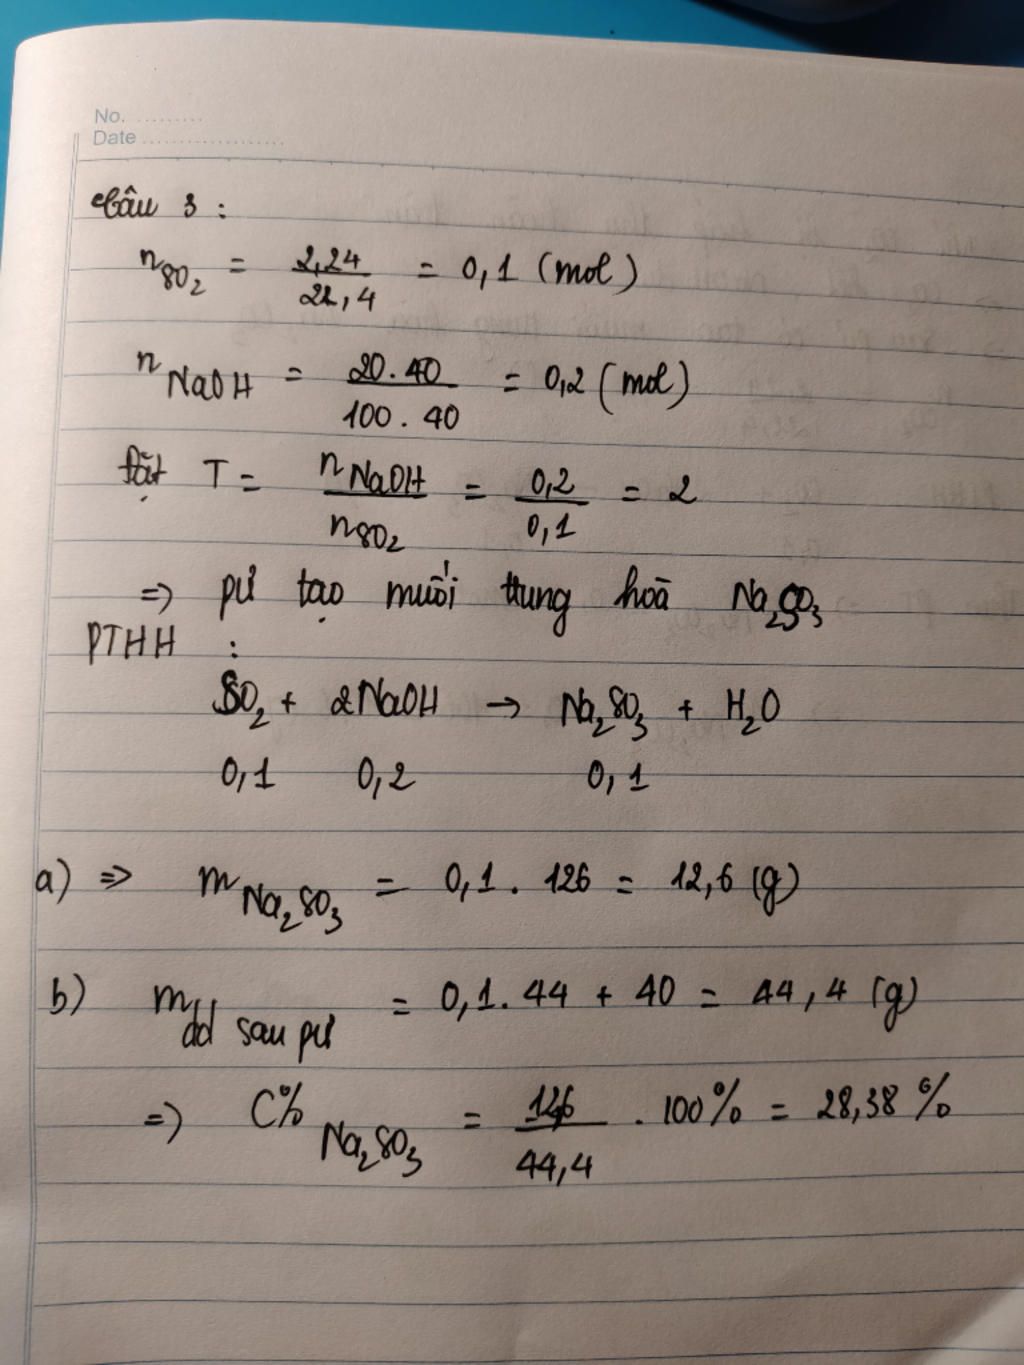 No. .........
Date ...................
Câu 3 :
n SO₂ = 2,24 / 22,4 = 0,1 (mol)
n NaOH = 20.40 / 100.40 = 0,2 (mol)
Đặt T = n NaOH / n SO₂ = 0,2 / 0,1 = 2
=> pư tạo muối trung hoà Na₂SO₃
PTHH :
SO₂ + 2NaOH → Na₂SO₃ + H₂O
0,1 0,2 0,1
a) => m Na₂SO₃ = 0,1 . 126 = 12,6 (g)
b) m dd sau pư = 0,1. 44 + 40 = 44,4 (g)
=> C% Na₂SO₃ = 126 / 44,4 . 100% = 28,38 %